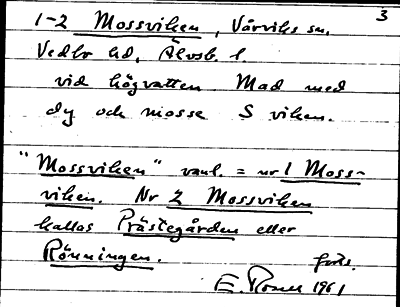 3
1-2 Mossviken, Vårviks sn.
Vedbo hd, Älvsb. l
vid högvatten Mad med
dy och mosse S viken.
"Mossviken" vanl. = nr 1 Moss-
viken. Nr 2 Mossviken
kallas Prästegården eller
Rönningen.
forts.
E. Rosell 1961